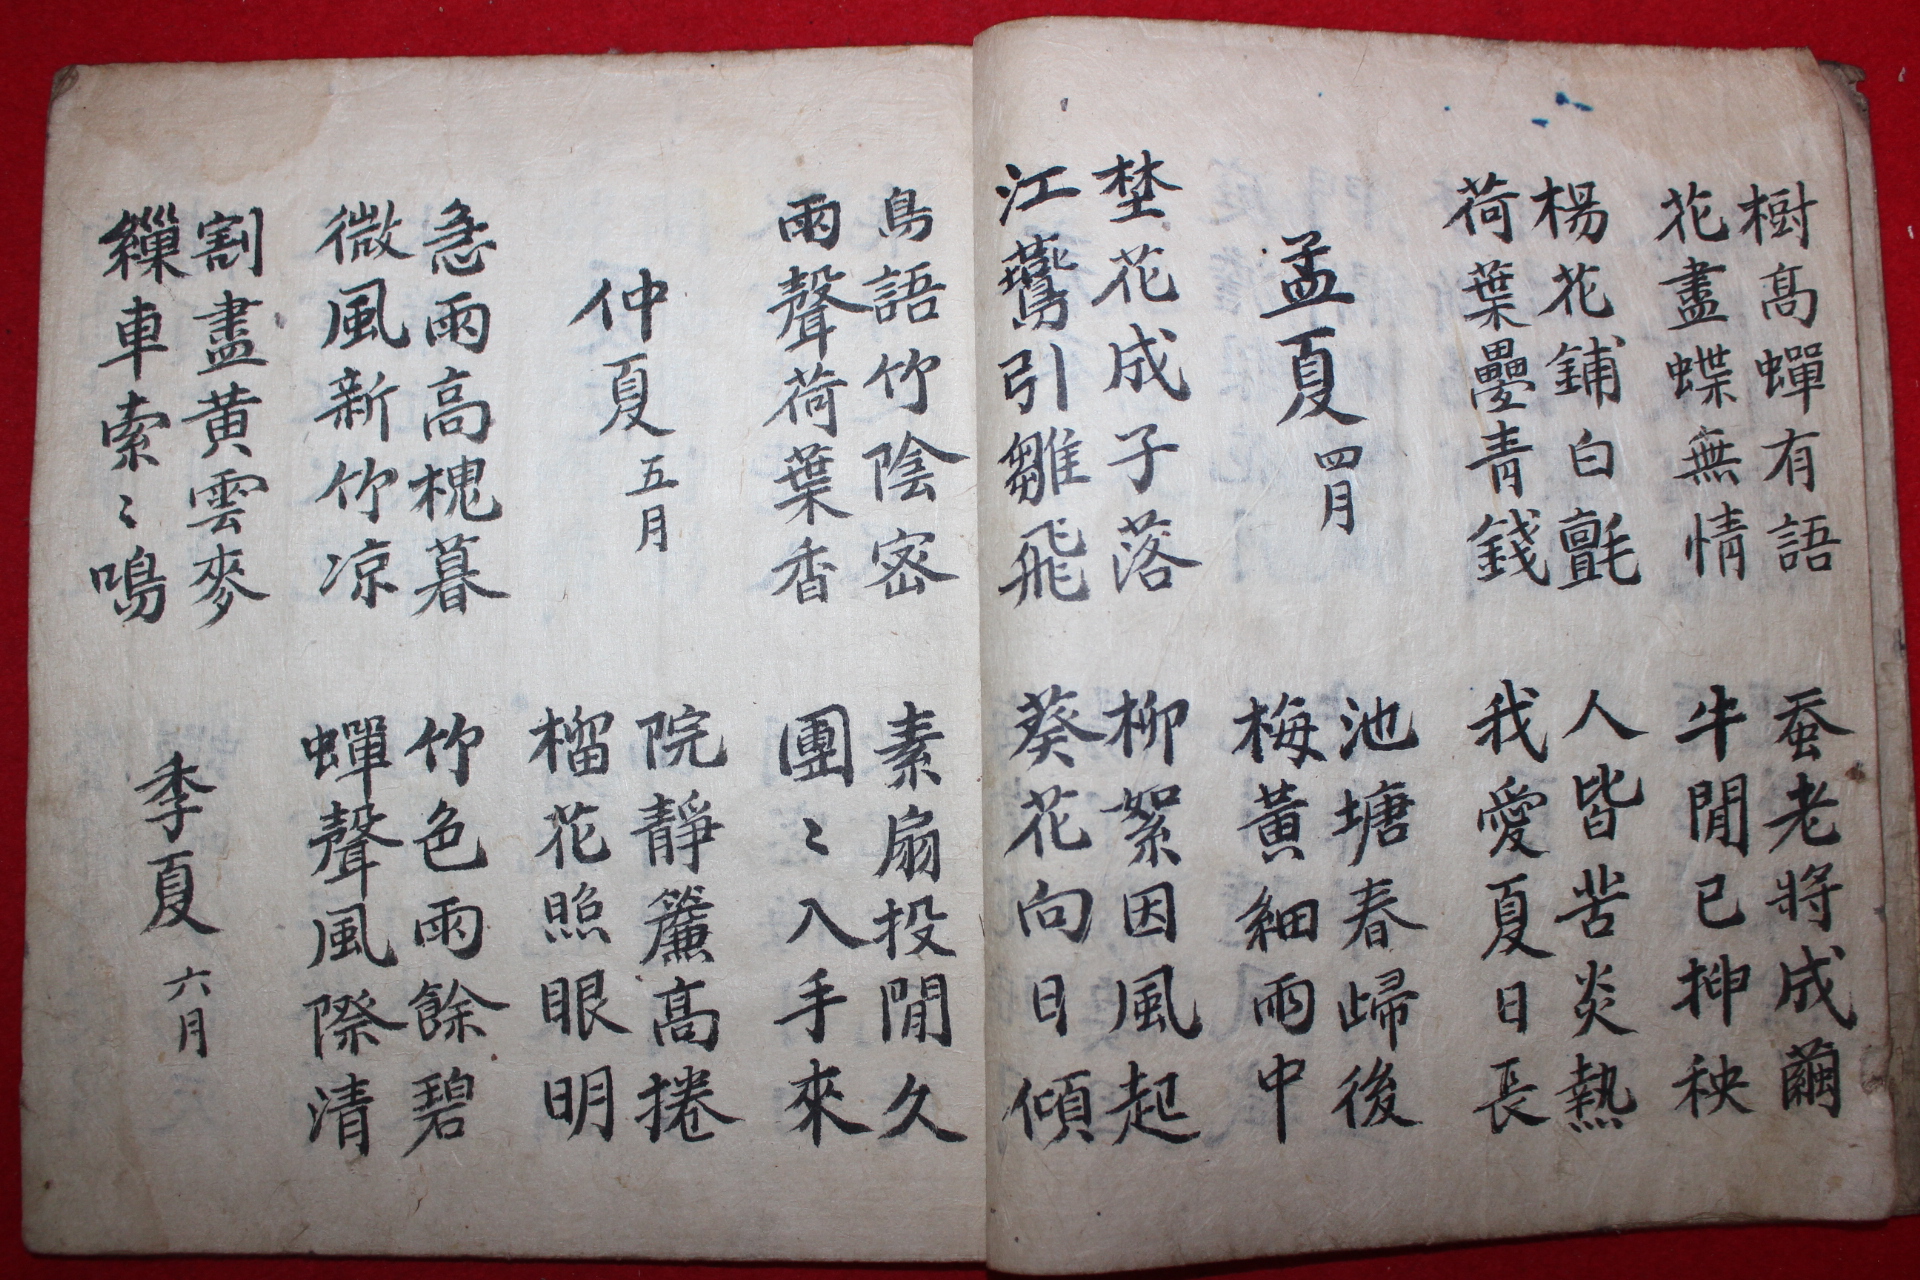 樹髙蟬有語
花盡蝶無情
蚕老將成繭
牛閒已抻秧
楊花鋪白氈
荷葉疊青錢
人皆苦炎熱
我愛夏日長
孟夏 四月
池塘春歸後
梅黃細雨中
埜花成子落
江鷰引雛飛
柳絮因風起
葵花向日傾
鳥語竹陰密
雨聲荷葉香
素扇投閒久
團〻入手來
仲夏 五月
院靜簾髙捲
榴花照眼明
急雨高槐暮
微風新竹凉
竹色雨餘碧
蟬聲風際清
割盡黄雲麥
繅車索〻鳴
季夏 六月